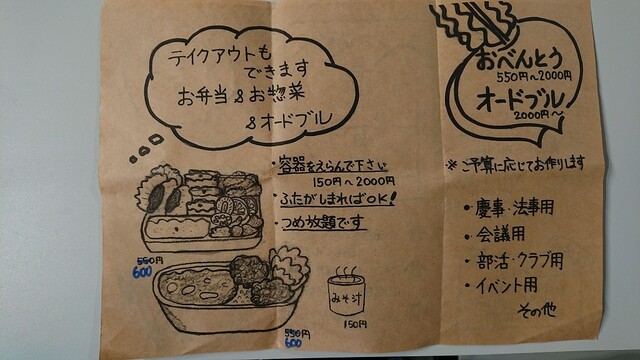 テイクアウトも
できます
お弁当&お惣菜
&オードブル
・容器をえらんで下さい
150円~2000円
・ふたがしまればOK!
・つめ放題です
550円
600
550円
600
みそ汁
150円
おべんとう
550円~2000円
オードブル
2000円~
※ご予算に応じてお作りします
・慶事・法事用
・会議用
・部活・クラブ用
・イベント用
その他